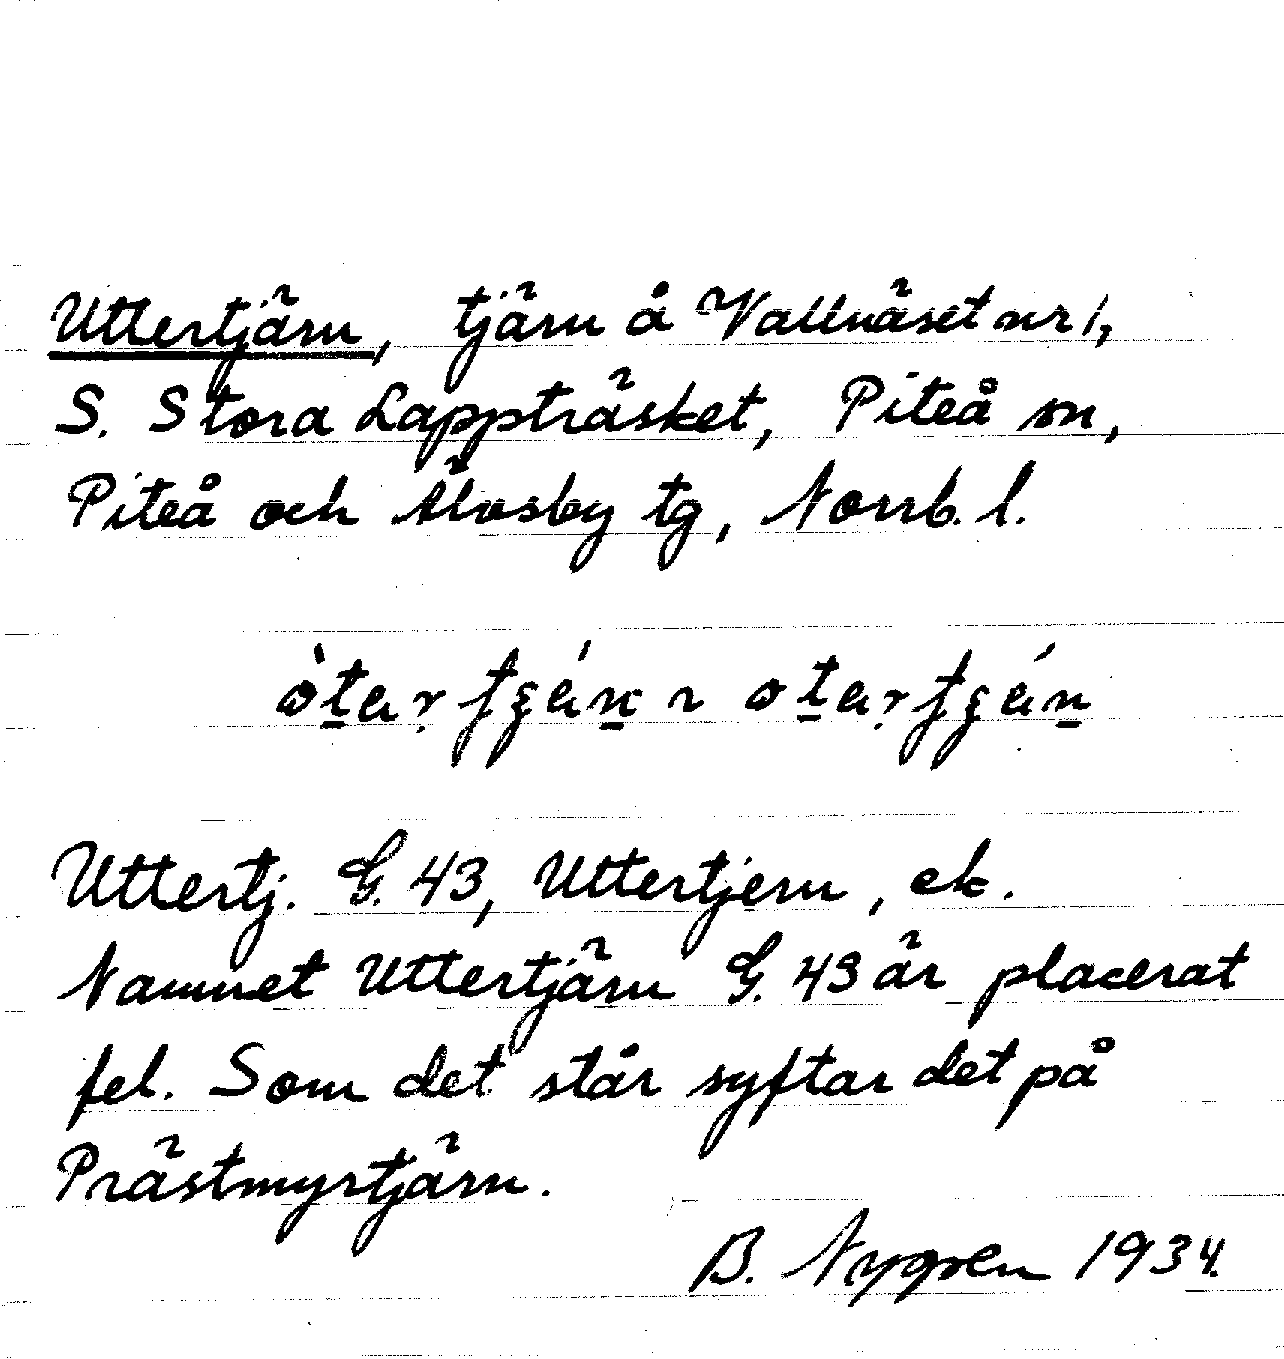 Uttertjärn, tjärn å Vallnäset nr 1,
S. Stora Lappträsket, Piteå sn,
Piteå och Älvsby tg, Norrb. l.
Uttertj. G. 43, Uttertjern, ek.
Namnet Uttertjärn G. 43 är placerat
fel. Som det står syftar det på
Prästmyrtjärn.
B. Nygren 1934.